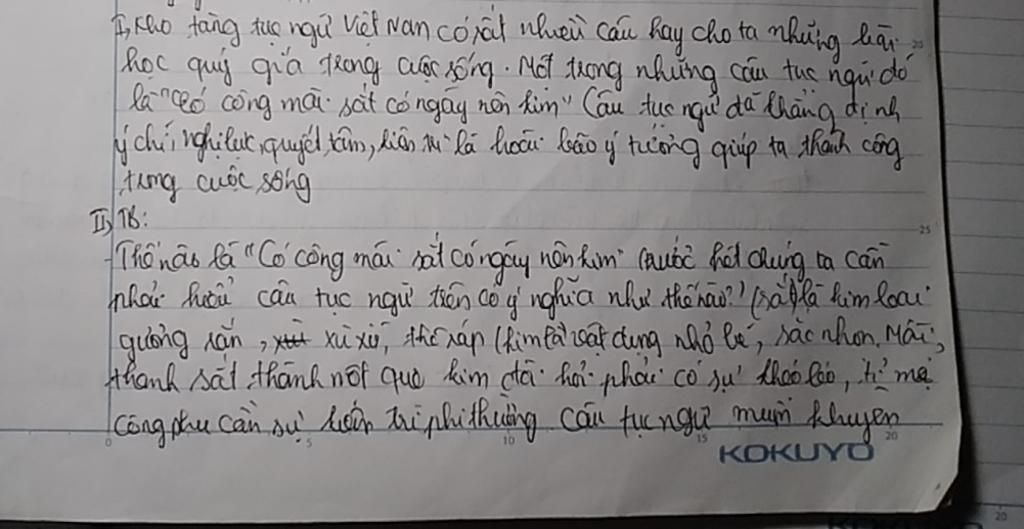 I, Kho tàng tục ngữ Việt Nam có rất nhiều câu hay cho ta những bài
học quý giá trong cuộc sống. Một trong những câu tục ngữ đó
là "Có công mài sắt có ngày nên kim" Câu tục ngữ đã khẳng định
ý chí, nghị lực, quyết tâm, kiên trì là hoài bão ý tưởng giúp ta thành công
trong cuộc sống
II, TB:
- Thế nào là "Có công mài sắt có ngày nên kim" trước hết chúng ta cần
phải hiểu câu tục ngữ trên có ý nghĩa như thế nào? (sắt) là kim loại
sần, xù xì, thô ráp (kim là vật dụng nhỏ bé, sắc nhọn. Mài
thanh sắt thành một que kim đòi hỏi phải có sự khéo léo, tỉ mẩ
công phu cần sự kiên trì phi thường Câu tục ngữ muốn khuyên
0 5 10 15 20
25
25
KOKUYO
20